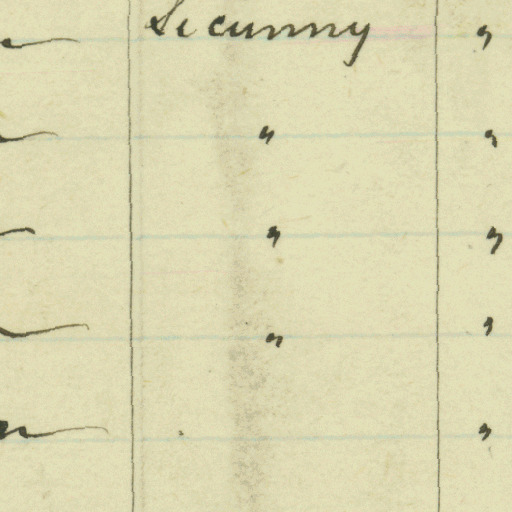 Secunny "
" "
" "
" "
"